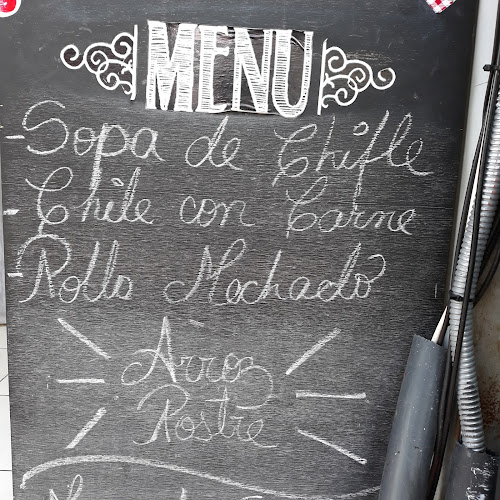 MENU
- Sopa de Chifle
- Chile con Carne
- Rollo Mechado
Arroz
Postre